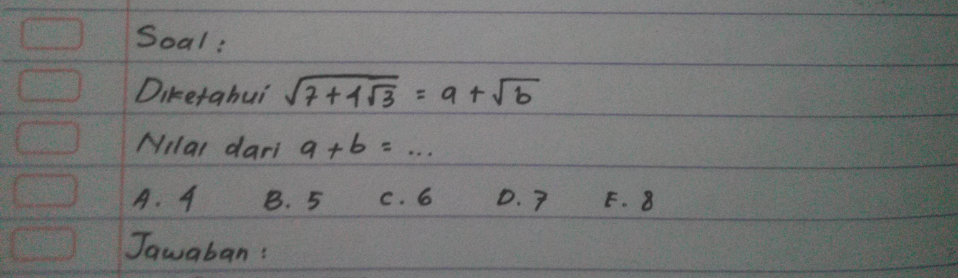 Soal:
Diketahui √7+4√3 = a+√b
Nilai dari a+b = ...
A. 4 B. 5 C. 6 D. 7 E. 8
Jawaban: